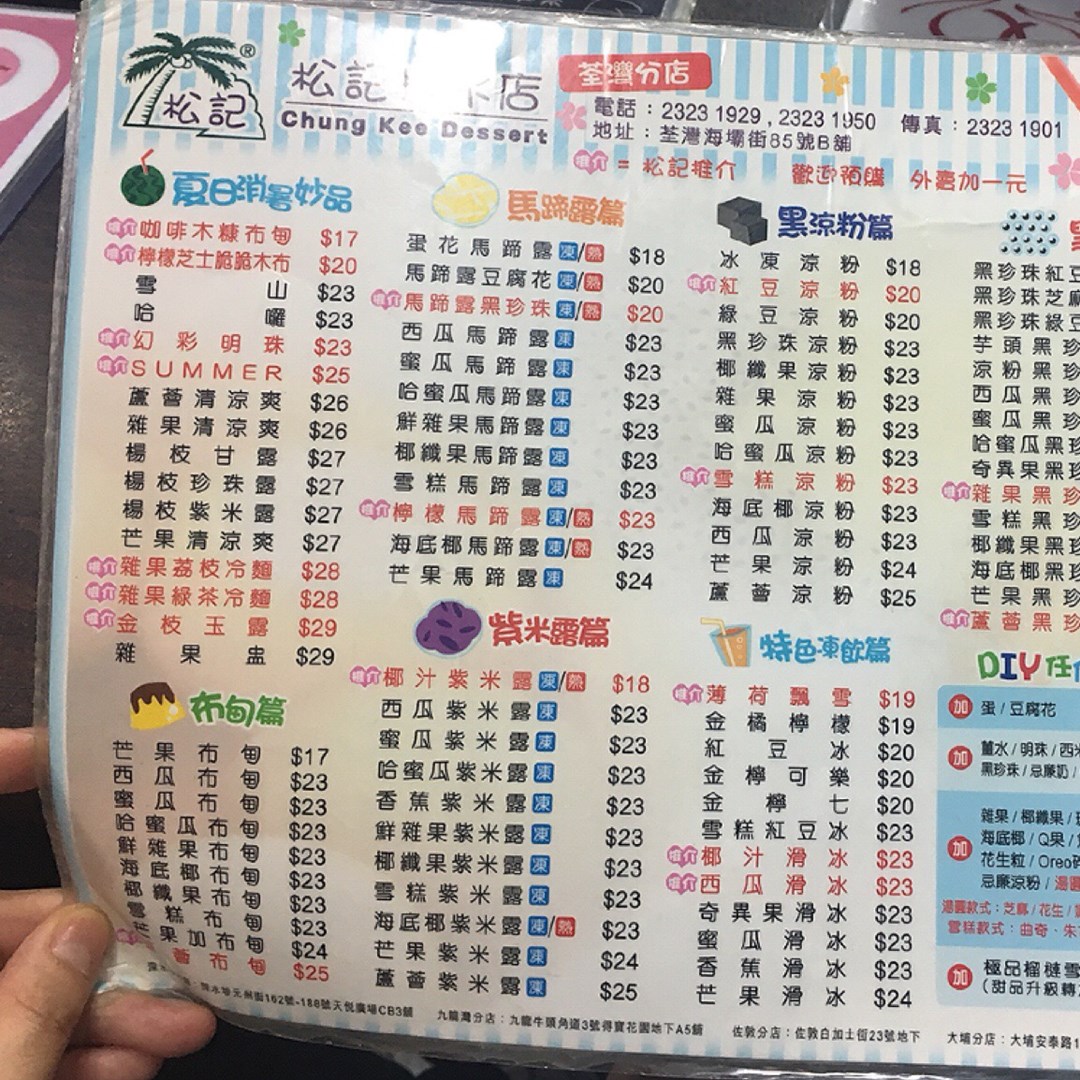 松記
®
松記 店
Chung Kee Dessert
荃灣分店
電話：2323 1929 , 2323 1950 傳真：2323 1901
地址：荃灣海壩街85號B舖
推介 = 松記推介 歡迎預購 外賣加一元
夏日消暑妙品
推介 咖啡木糠布甸 $17
推介 檸檬芝士脆脆木布 $20
雪山 $23
哈囉 $23
推介 幻彩明珠 $23
推介 SUMMER $25
蘆薈清涼爽 $26
雜果清涼爽 $26
楊枝甘露 $27
楊枝珍珠露 $27
楊枝紫米露 $27
芒果清涼爽 $27
推介 雜果荔枝冷麵 $28
推介 雜果綠茶冷麵 $28
推介 金枝玉露 $29
雜果盅 $29
布甸篇
芒果布甸 $17
西瓜布甸 $23
蜜瓜布甸 $23
哈蜜瓜布甸 $23
鮮雜果布甸 $23
海底椰布甸 $23
椰纖果布甸 $23
雪糕布甸 $23
芒果加布甸 $24
薈布甸 $25
馬蹄露篇
蛋花馬蹄露 凍/熱 $18
馬蹄露豆腐花 凍/熱 $20
推介 馬蹄露黑珍珠 凍/熱 $20
西瓜馬蹄露 凍 $23
蜜瓜馬蹄露 凍 $23
哈蜜瓜馬蹄露 凍 $23
鮮雜果馬蹄露 凍 $23
椰纖果馬蹄露 凍 $23
雪糕馬蹄露 凍 $23
推介 檸檬馬蹄露 凍/熱 $23
海底椰馬蹄露 凍/熱 $23
芒果馬蹄露 凍 $24
紫米露篇
推介 椰汁紫米露 凍/熱 $18
西瓜紫米露 凍 $23
蜜瓜紫米露 凍 $23
哈蜜瓜紫米露 凍 $23
香蕉紫米露 凍 $23
鮮雜果紫米露 凍 $23
椰纖果紫米露 凍 $23
雪糕紫米露 凍 $23
海底椰紫米露 凍/熱 $23
芒果紫米露 凍 $24
蘆薈紫米露 凍 $25
黑涼粉篇
冰凍涼粉 $18
推介 紅豆涼粉 $20
綠豆涼粉 $20
黑珍珠涼粉 $23
椰纖果涼粉 $23
雜果涼粉 $23
蜜瓜涼粉 $23
哈蜜瓜涼粉 $23
推介 雪糕涼粉 $23
海底椰涼粉 $23
西瓜涼粉 $23
芒果涼粉 $24
蘆薈涼粉 $25
特色凍飲篇
推介 薄荷飄雪 $19
金橘檸檬 $19
紅豆冰 $20
金檸可樂 $20
金檸七 $20
雪糕紅豆冰 $23
推介 椰汁滑冰 $23
推介 西瓜滑冰 $23
奇異果滑冰 $23
蜜瓜滑冰 $23
香蕉滑冰 $23
芒果滑冰 $24
黑珍珠紅豆
黑珍珠芝麻
黑珍珠綠豆
芋頭黑珍
涼粉黑珍
西瓜黑珍
蜜瓜黑珍
哈蜜瓜黑珍
奇異果黑珍
推介 雜果黑珍
雪糕黑珍
椰纖果黑珍
海底椰黑珍
芒果黑珍
推介 蘆薈黑珍
DIY任
加 蛋/豆腐花
加 薑水/明珠/西米
黑珍珠/忌廉奶/
加 雜果/椰纖果/
海底椰/Q果/
花生粒/Oreo碎
忌廉涼粉/湯圓
湯圓款式：芝麻/花生/
雪糕款式：曲奇、朱
加 極品榴槤雪
(甜品升級轉
元州街162號-188號天悅廣場CB3舖
九龍灣分店：九龍牛頭角道3號得寶花園地下A5舖
佐敦分店：佐敦白加士街23號地下
大埔分店：大埔安泰路1